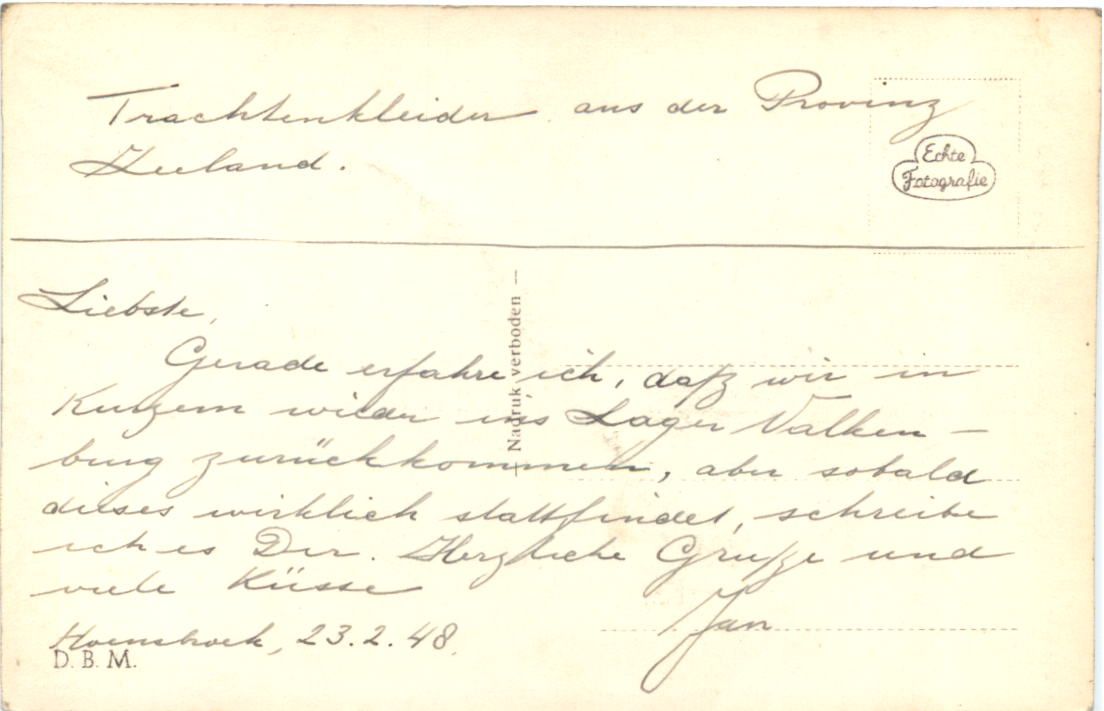 Trachtenkleider aus der Provinz
Zeeland.
Echte
Fotografie
Liebste,
Gerade erfahre ich, daß wir in
Kurzem wieder ins Lager Valken-
burg zurückkommen, aber sobald
dieses wirklich stattfindet, schreibe
ich es Dir. Herzliche Grüße und
viele Küsse
Jan
Hoensbroek, 23.2.48.
D. B. M.
Nadruk verboden —